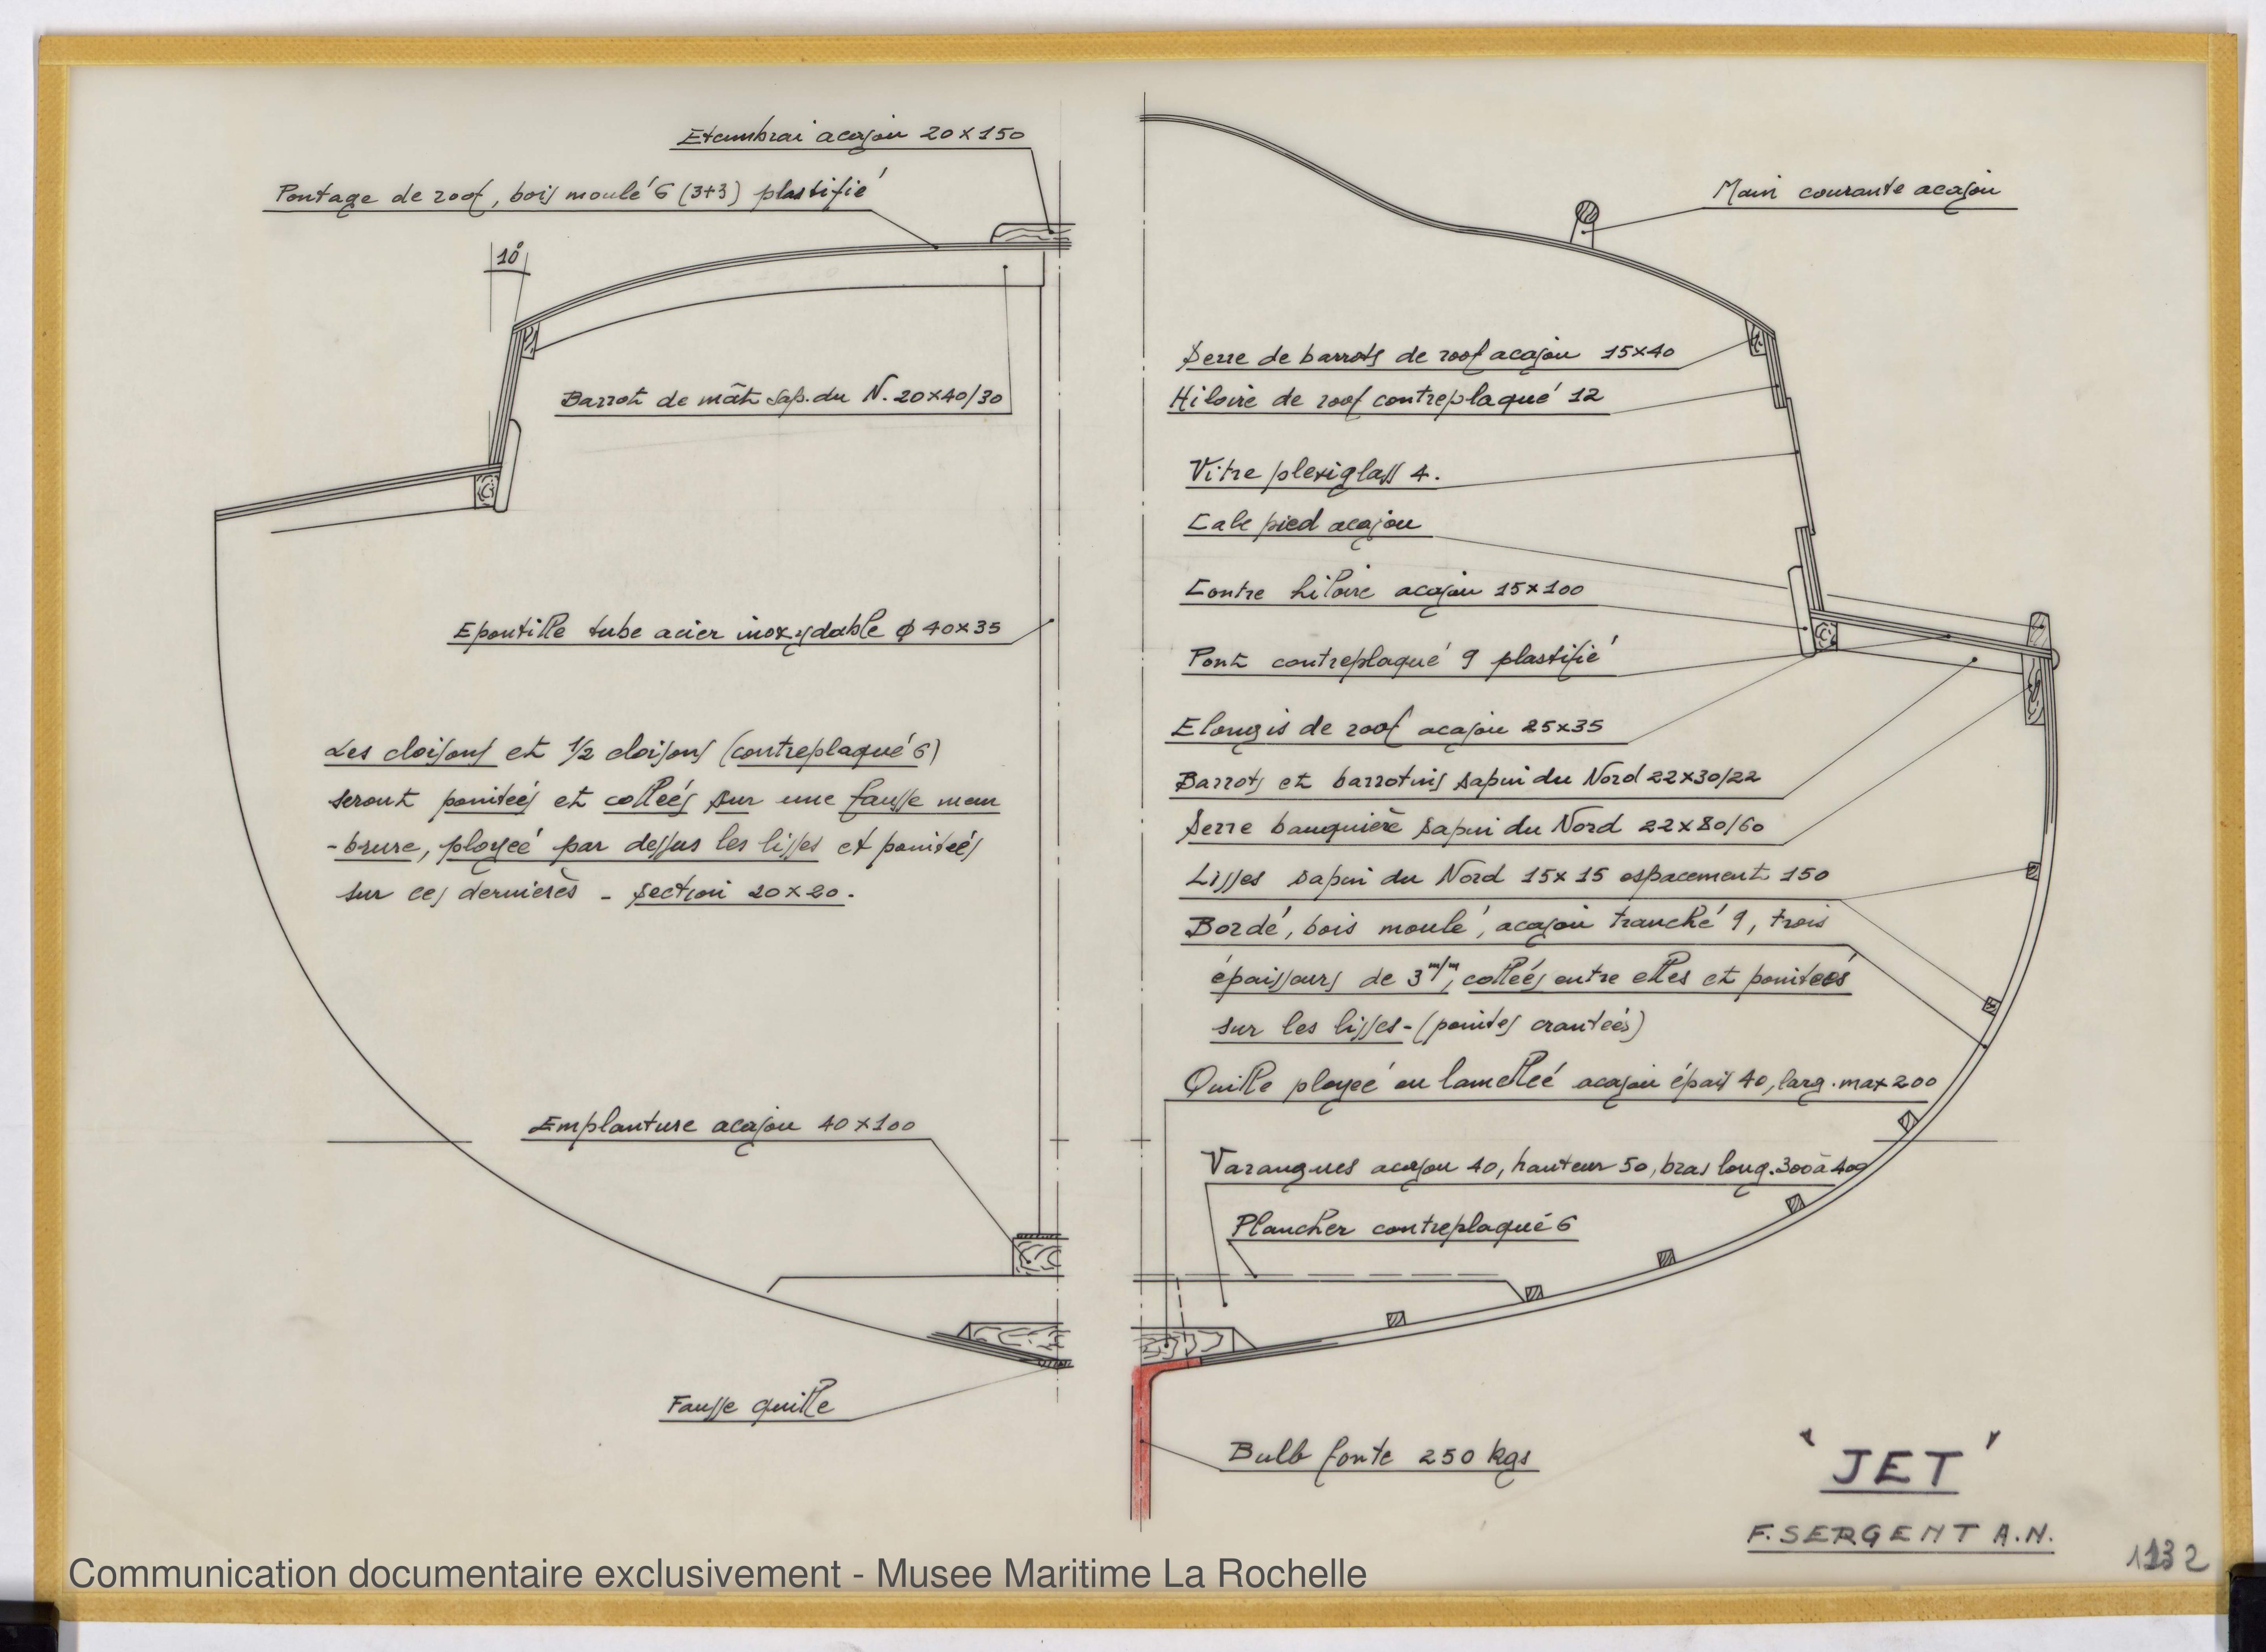 Etambrai acajou 20x150
Pontage de roof, bois moulé 6 (3+3) plastifié
10°
Barrot de mât sap. du N. 20x40/30
Epontille tube acier inoxydable ϕ 40x35
Les cloisons et 1/2 cloisons (contreplaqué 6)
seront pointées et collées sur une fausse mem
-brure, ployée par dessus les lisses et pointées
sur ces dernières - section 20x20.
Emplanture acajou 40x100
Fausse quille
Main courante acajou
Serre de barrots de roof acajou 15x40
Hiloire de roof contreplaqué 12
Vitre plexiglass 4.
Cale pied acajou
Contre hiloire acajou 15x100
Pont contreplaqué 9 plastifié
Elongis de roof acajou 25x35
Barrots et barrotins sapin du Nord 22x30/22
Serre bauquière sapin du Nord 22x80/60
Lisses sapin du Nord 15x15 espacement 150
Bordé, bois moulé, acajou tranché 9, trois
épaisseurs de 3 m/m, collées entre elles et pointées
sur les lisses - (pointes crantées)
Quille ployée ou lamellée acajou épais 40, larg. max 200
Varangues acajou 40, hauteur 50, bras long. 300 à 400
Plancher contreplaqué 6
Bulb fonte 250 kgs
"JET"
F. SERGENT A.N.
1132
Communication documentaire exclusivement - Musee Maritime La Rochelle